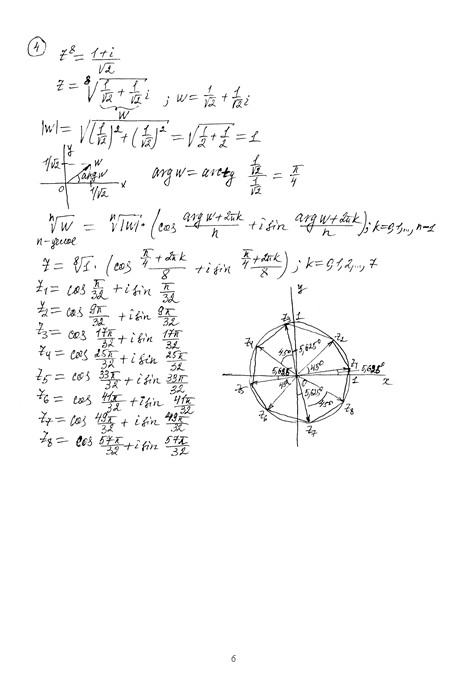 4
z⁸ = (1+i)/√2
z = ⁸√(1/√2 + 1/√2 i) ; w = 1/√2 + 1/√2 i
w
|w| = √((1/√2)² + (1/√2)²) = √(1/2 + 1/2) = 1
y 1/√2 w arg w 0 1/√2 x
arg w = arctg (1/√2)/(1/√2) = π/4
ⁿ√w = ⁿ√|w| · (cos (arg w + 2πk)/n + i sin (arg w + 2πk)/n) ; k = 0,1,..., n-1
z = ⁸√1 · (cos (π/4 + 2πk)/8 + i sin (π/4 + 2πk)/8) ; k = 0,1,2,..., 7
z₁ = cos π/32 + i sin π/32
z₂ = cos 9π/32 + i sin 9π/32
z₃ = cos 17π/32 + i sin 17π/32
z₄ = cos 25π/32 + i sin 25π/32
z₅ = cos 33π/32 + i sin 33π/32
z₆ = cos 41π/32 + i sin 41π/32
z₇ = cos 49π/32 + i sin 49π/32
z₈ = cos 57π/32 + i sin 57π/32
y
z₃ 1
z₄ 45° 5,625° z₂
5,625 45° z₁ 5,625°
z₅ 45° 0 1 x
5,625°
z₆ 45° z₈
z₇
6